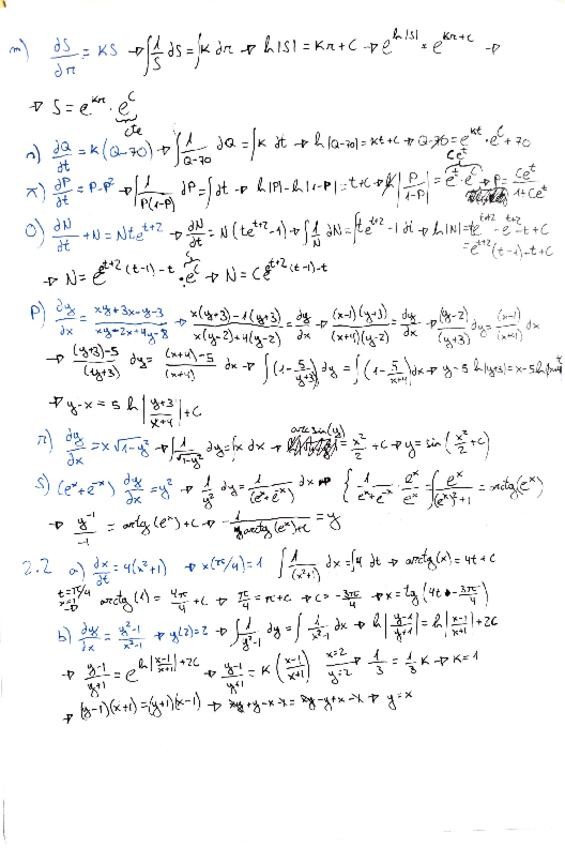 m) dS/dr = KS → ∫ 1/S dS = ∫ K dr → ln|S| = Kr + C → e^(ln|S|) = e^(Kr+C) →
→ S = e^(Kr) · e^C cte
n) dQ/dt = K(Q-70) → ∫ 1/(Q-70) dQ = ∫ K dt → ln|Q-70| = Kt + C → Q-70 = e^(Kt) · e^C + 70
dP/dt = P-P² → ∫ 1/(P(1-P)) dP = ∫ dt → ln|P| - ln|1-P| = t + C → ln|P/(1-P)| = e^t · e^C Ce^t → P = Ce^t/(1+Ce^t)
O) dN/dt + N = Nte^(t+2) → dN/dt = N(te^(t+2) - 1) → ∫ 1/N dN = ∫ te^(t+2) - 1 dt → ln|N| = te^(t+2) - e^(t+2) - t + C
= e^(t+2)(t-1) - t + C
→ N = e^(e^(t+2)(t-1)-t) · e^C → N = Ce^(e^(t+2)(t-1)-t)
P) dy/dx = (xy+3x-y-3)/(xy-2x+4y-8) → (x(y+3)-1(y+3))/(x(y-2)+4(y-2)) = dy/dx → ((x-1)(y+3))/((x+4)(y-2)) = dy/dx → (y-2)/(y+3) dy = (x-1)/(x+4) dx
→ ((y+3)-5)/(y+3) dy = ((x+4)-5)/(x+4) dx → ∫ (1 - 5/(y+3)) dy = ∫ (1 - 5/(x+4)) dx → y - 5 ln|y+3| = x - 5 ln|x+4|
→ y-x = 5 ln|(y+3)/(x+4)| + C
r) dy/dx = x√(1-y²) → ∫ 1/√(1-y²) dy = ∫ x dx → arcsin(y) = x²/2 + C → y = sin(x²/2 + C)
S) (e^x + e^-x) dy/dx = y² → 1/y² dy = 1/(e^x + e^-x) dx → ∫ 1/(e^x + e^-x) · e^x/e^x = ∫ e^x/((e^x)² + 1) = arctg(e^x)
→ y^-1/-1 = arctg(e^x) + C → -1/(arctg(e^x) + C) = y
2.2 a) dx/dt = 4(x²+1) → x(π/4) = 1 ∫ 1/(x²+1) dx = ∫ 4 dt → arctg(x) = 4t + C
t=π/4 x=1 → arctg(1) = 4π/4 + C → π/4 = π + C → C = -3π/4 → x = tg(4t - 3π/4)
b) dy/dx = (y²-1)/(x²-1) → y(2) = 2 → ∫ 1/(y²-1) dy = ∫ 1/(x²-1) dx → ln|(y-1)/(y+1)| = ln|(x-1)/(x+1)| + 2C
→ (y-1)/(y+1) = e^(ln|(x-1)/(x+1)| + 2C) → (y-1)/(y+1) = K((x-1)/(x+1)) x=2 y=2 → 1/3 = 1/3 K → K = 1
→ (y-1)(x+1) = (y+1)(x-1) → xy+y-x-1 = xy-y+x-1 → y = x